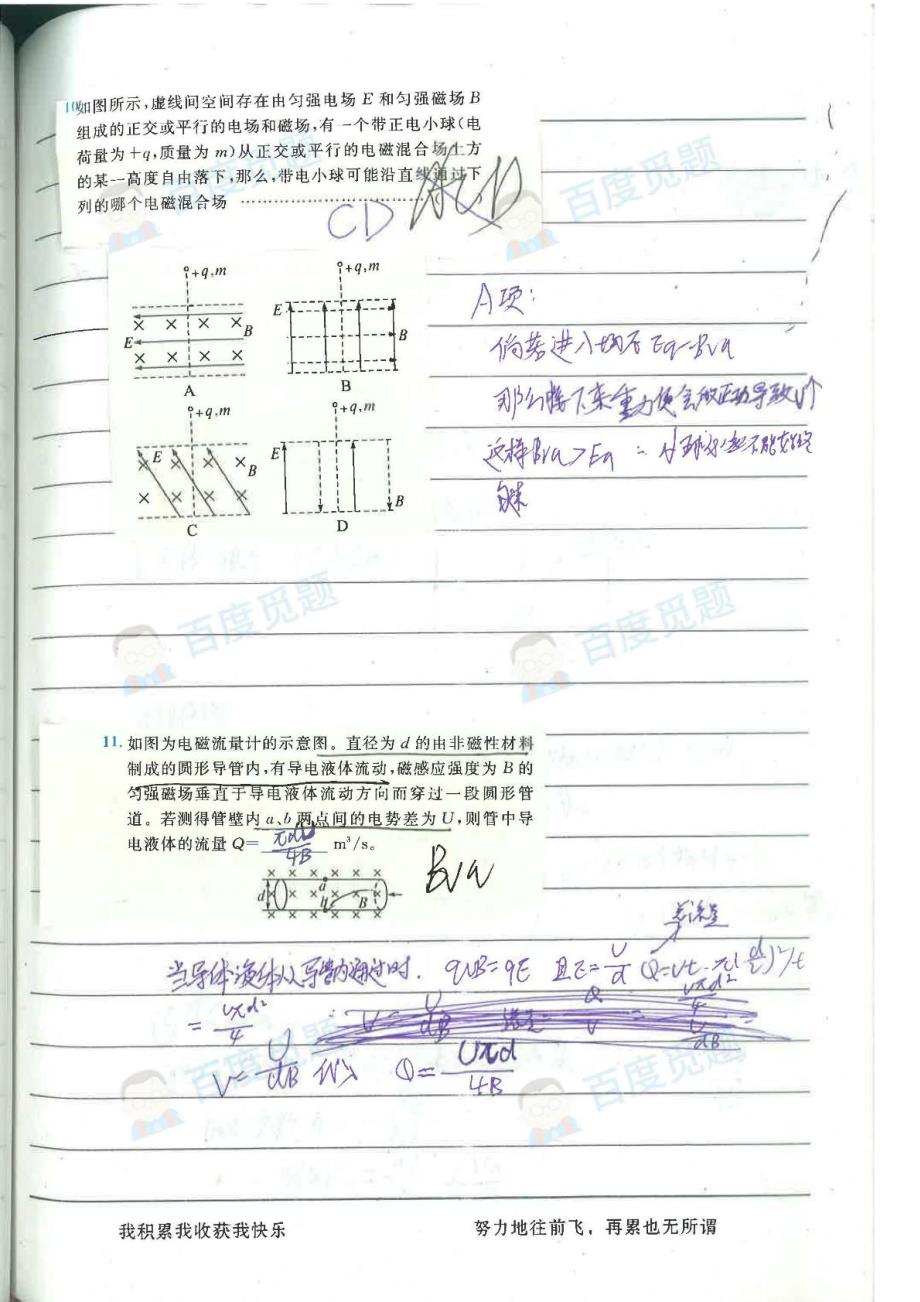 10.如图所示,虚线间空间存在由匀强电场 E 和匀强磁场 B
组成的正交或平行的电场和磁场,有一个带正电小球(电
荷量为+q,质量为 m)从正交或平行的电磁混合场上方
的某一高度自由落下,那么,带电小球可能沿直线通过下
列的哪个电磁混合场
CD
+q,m
+q,m
E
B
E
B
A
B
+q,m
+q,m
E
B
E
B
C
D
A项:
倘若进入场后 Eq=Bvq
那么接下来重力便会做正功导致v个
这样Bvq>Eq
百度觅题
百度觅题
百度觅题
百度觅题
11. 如图为电磁流量计的示意图。直径为 d 的由非磁性材料
制成的圆形导管内,有导电液体流动,磁感应强度为 B 的
匀强磁场垂直于导电液体流动方向而穿过一段圆形管
道。若测得管壁内 a、b 两点间的电势差为 U,则管中导
电液体的流量 Q= πdU/4B m³/s。
Bvq
d
a
b
B
当导体液体从导管内通过时. qvB=qE 且E=U/d Q=vt·π(d/2)²/t
= vπd²/4
v= U/dB 代入 Q= Uπd/4B
百度觅题
百度觅题
我积累我收获我快乐
努力地往前飞，再累也无所谓